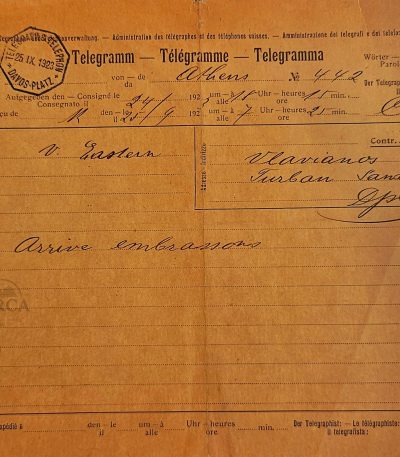 erwaltung. - Administration des télégraphes et des téléphones suisses. - Amministrazione dei telegrafi e dei telefo
TELEGRAPH & TELEPHON
25.IX.1923
DAVOS-PLATZ
Telegramm — Télégramme — Telegramma
Wörter
Parol
von — de
da
Athens
№ 442
Der Telegraphi
Il tel
Aufgegeben den — Consigné le
Consegnato il
24/ 192
um — à
alle
18 Uhr — heures
ore
15 min.
çu de
den — le
il
25/9 192
um — à
alle
7 Uhr — heures
ore
25 min.
v. Eastern
Contr.
Vlavianos
Turban Sand
Arrive embrassons
RCA
xpédié à
den — le
il
um — à
alle
Uhr — heures
ore
min.
Der Telegraphist: — Le télégraphiste:
Il telegrafista: